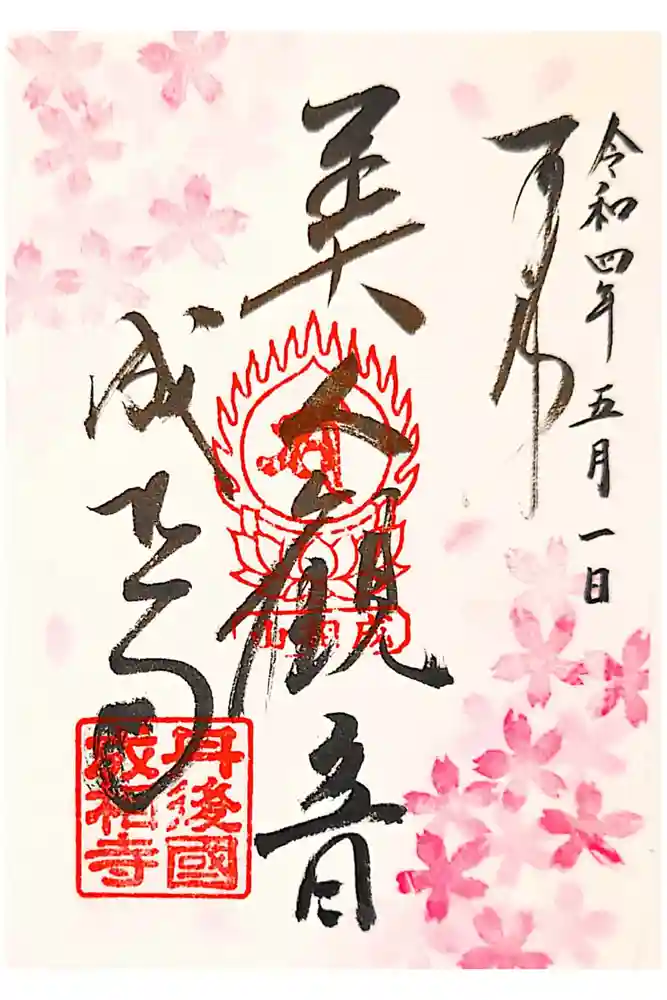 令和四年五月一日
奉拝
美人観音
成相山
成相寺
丹後國
成相寺